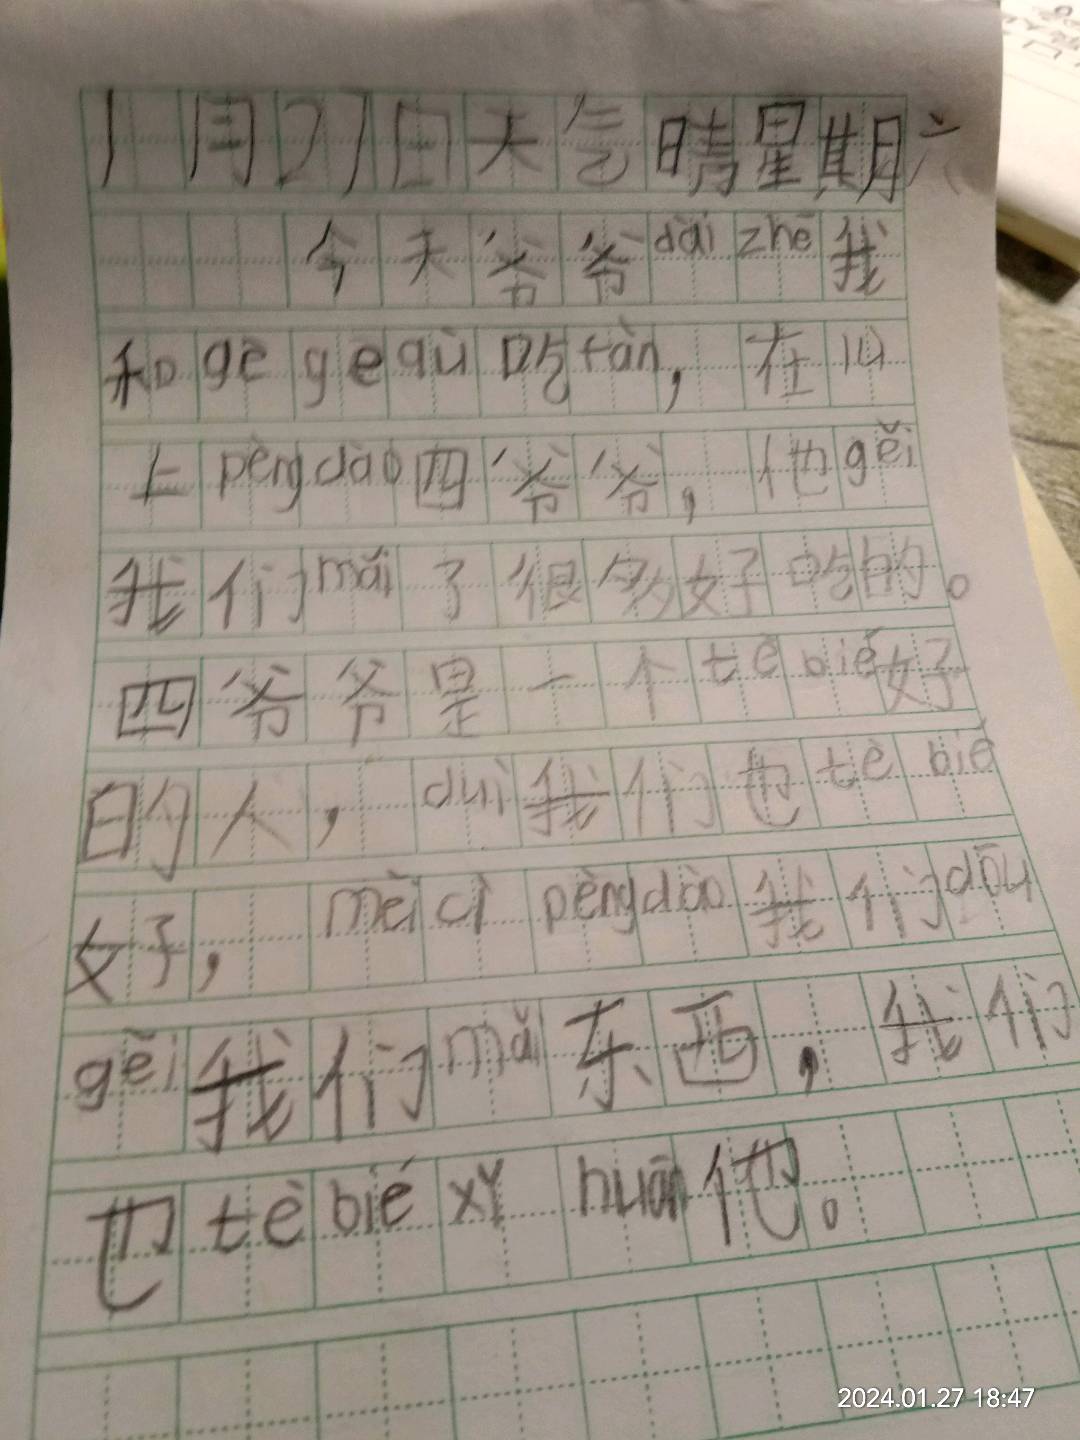 1月27日天气晴星期六
今天爷爷dài zhē我
和gē gē qù吃fàn，在lù
上pèngdào四爷爷，他gěi
我们mǎi了很多好吃的。
四爷爷是一个tè bié好
的人，duì我们也tè bié
好，měi cì pèngdào我们dōu
gěi我们mǎi东西，我们
也tè bié xǐ huān他。
2024.01.27 18:47